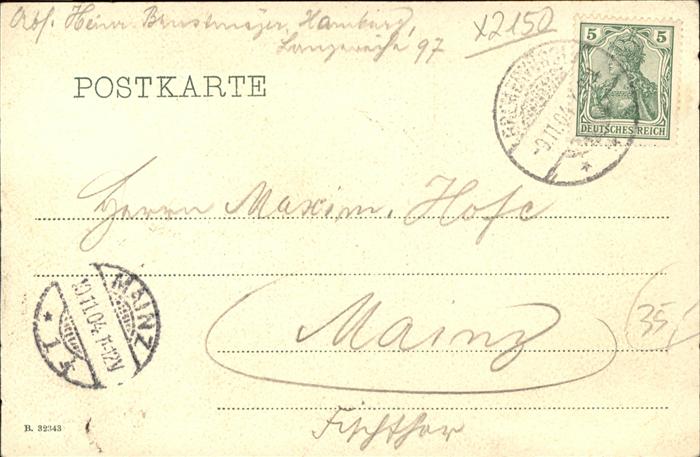 Abs. Heinr. Brustmeyer, Hamburg,
Langereihe 97
X2150
POSTKARTE
5 5
DEUTSCHES REICH
9.11.04
Herrn Maxim. Hofe
Mainz
35
Fischthor
MAINZ
10.11.04 11-12V
* 1
B. 32343